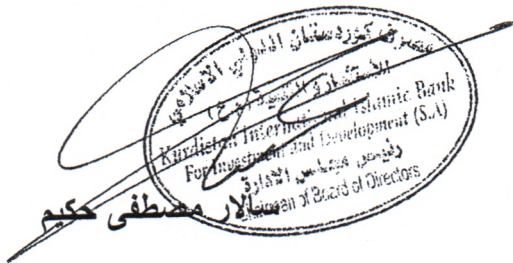 مصرف كوردستان الدولي الاسلامي
للاستثمار و التنمية
Kurdistan International Islamic Bank
For Investment and Development (S.A)
رئيس مجلس الادارة
Chairman of Board of Directors
سالار مصطفى حكيم